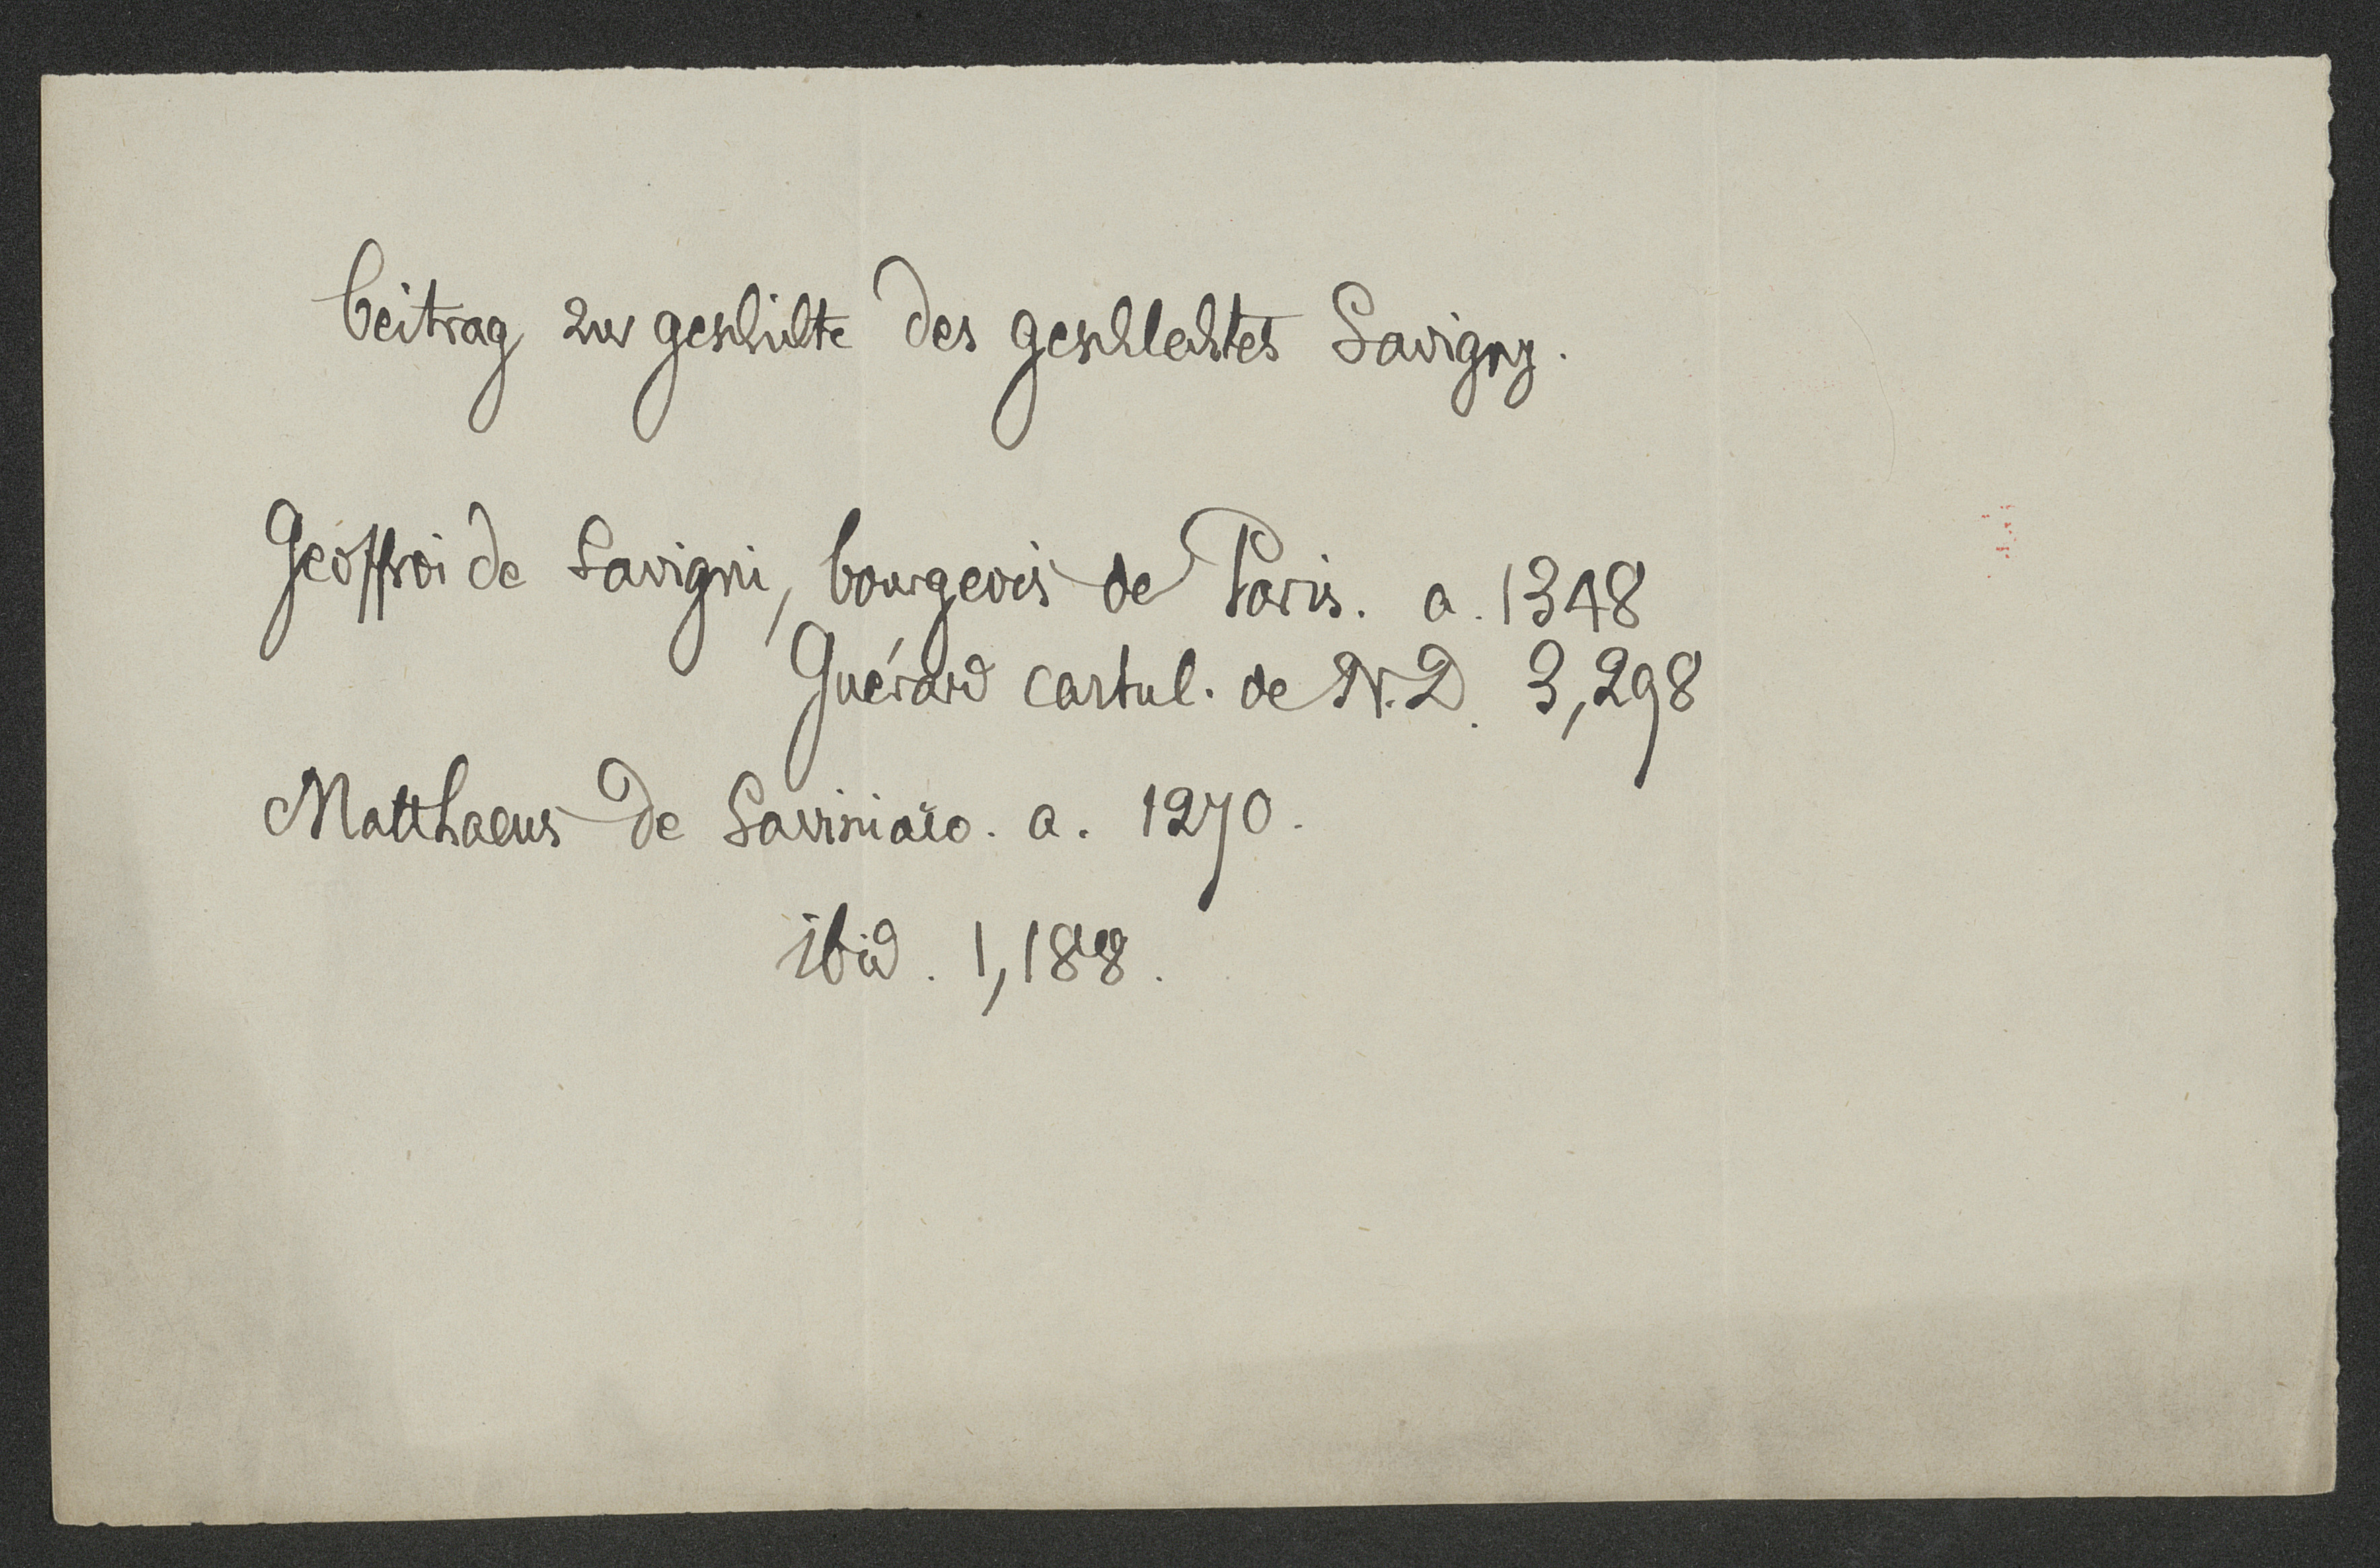 beitrag zur geschichte des geschlechtes Savigny.
Geoffroi de Savigni, bourgeois de Paris. a. 1348
Guérard cartul. de N. D. 3, 298
Matthaeus de Saviniaco. a. 1270.
ibid. 1, 188.